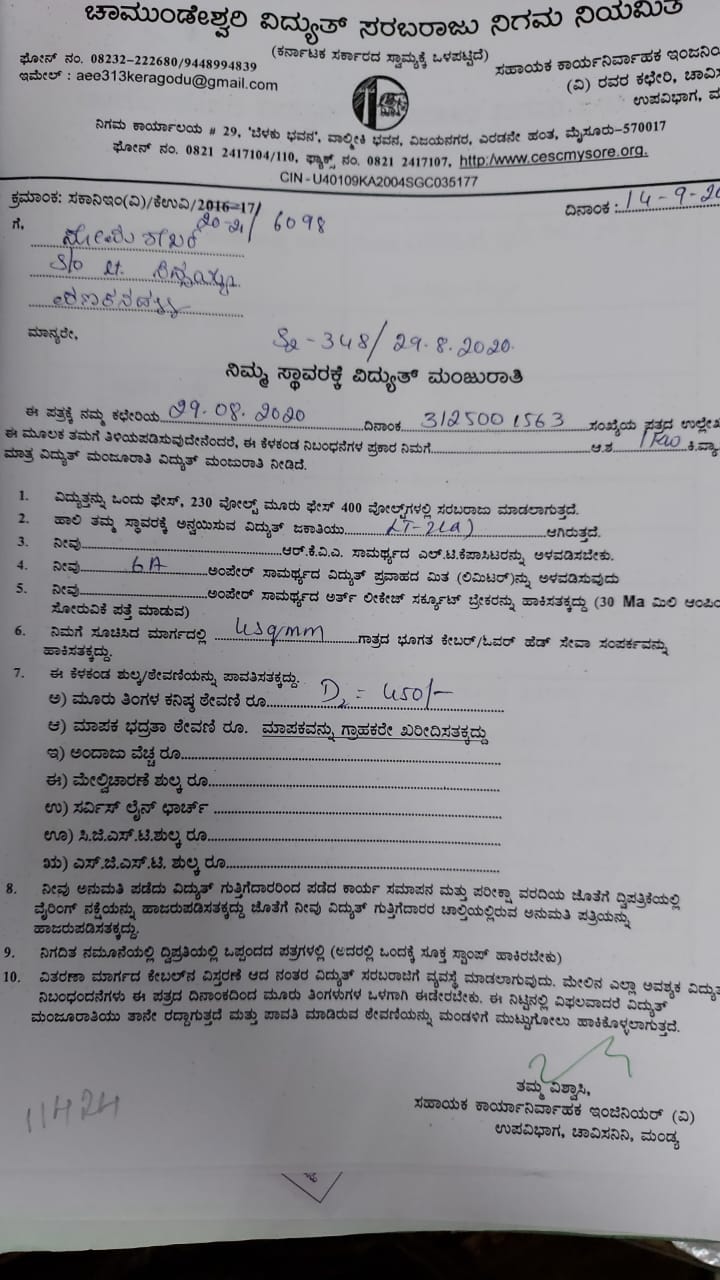 ಚಾಮುಂಡೇಶ್ವರಿ ವಿದ್ಯುತ್ ಸರಬರಾಜು ನಿಗಮ ನಿಯಮಿತ
(ಕರ್ನಾಟಕ ಸರ್ಕಾರದ ಸ್ವಾಮ್ಯಕ್ಕೆ ಒಳಪಟ್ಟಿದೆ)
ಫೋನ್ ನಂ. 08232-222680/9448994839
ಇಮೇಲ್ : aee313keragodu@gmail.com
ಸಹಾಯಕ ಕಾರ್ಯನಿರ್ವಾಹಕ
(ವಿ) ರವರ ಕಛೇರಿ,
ಉಪವಿಭಾಗ,
ನಿಗಮ ಕಾರ್ಯಾಲಯ # 29, 'ಬೆಳಕು ಭವನ', ವಾಲ್ಮೀಕಿ ಭವನ, ವಿಜಯನಗರ, ಎರಡನೇ ಹಂತ, ಮೈಸೂರು-570017
ಫೋನ್ ನಂ. 0821 2417104/110, ಫ್ಯಾಕ್ಸ್ ನಂ. 0821 2417107, http:/www.cescmysore.org.
CIN - U40109KA2004SGC035177
ಕ್ರಮಾಂಕ: ಸಕಾನಿಇಂ(ವಿ)/ಕೆಉವಿ/2016-17/
20-21/ 6098
ದಿನಾಂಕ : 14-9-20
ಗೆ,
S/o Lt.
ಮಾನ್ಯರೇ,
S2-348/29.8.2020.
ನಿಮ್ಮ ಸ್ಥಾವರಕ್ಕೆ ವಿದ್ಯುತ್ ಮಂಜುರಾತಿ
ಈ ಪತ್ರಕ್ಕೆ ನಮ್ಮ ಕಛೇರಿಯ 29.08.2020 ದಿನಾಂಕ 3125001563 ಸಂಖ್ಯೆಯ ಪತ್ರದ
ಈ ಮೂಲಕ ತಮಗೆ ತಿಳಿಯಪಡಿಸುವುದೇನೆಂದರೆ, ಈ ಕೆಳಕಂಡ ನಿಬಂಧನೆಗಳ ಪ್ರಕಾರ ನಿಮಗೆ ಆ.ಶ 1KW ಕಿ.ವ್ಯಾ.
ಮಾತ್ರ ವಿದ್ಯುತ್ ಮಂಜೂರಾತಿ ವಿದ್ಯುತ್ ಮಂಜುರಾತಿ ನೀಡಿದೆ.
1. ವಿದ್ಯುತ್ತನ್ನು ಒಂದು ಫೇಸ್, 230 ವೋಲ್ಟ್ ಮೂರು ಫೇಸ್ 400 ವೋಲ್ಟ್‌ಗಳಲ್ಲಿ ಸರಬರಾಜು ಮಾಡಲಾಗುತ್ತದೆ.
2. ಹಾಲಿ ತಮ್ಮ ಸ್ಥಾವರಕ್ಕೆ ಅನ್ವಯಿಸುವ ವಿದ್ಯುತ್ ಜಕಾತಿಯು LT-2(a) ಆಗಿರುತ್ತದೆ.
3. ನೀವು ಆರ್.ಕೆ.ವಿ.ಎ. ಸಾಮರ್ಥ್ಯದ ಎಲ್.ಟಿ.ಕೆಪಾಸಿಟರನ್ನು ಅಳವಡಿಸಬೇಕು.
4. ನೀವು 6A ಅಂಪೇರ್ ಸಾಮರ್ಥ್ಯದ ವಿದ್ಯುತ್ ಪ್ರವಾಹದ ಮಿತ (ಲಿಮಿಟರ್)ನ್ನು ಅಳವಡಿಸುವುದು
5. ನೀವು ಅಂಪೇರ್ ಸಾಮರ್ಥ್ಯದ ಅರ್ತ್ ಲೀಕೇಜ್ ಸರ್ಕ್ಯೂಟ್ ಬ್ರೇಕರನ್ನು ಹಾಕಿಸತಕ್ಕದ್ದು (30 Ma ಮಿಲಿ
ಸೋರುವಿಕೆ ಪತ್ತೆ ಮಾಡುವ)
6. ನಿಮಗೆ ಸೂಚಿಸಿದ ಮಾರ್ಗದಲ್ಲಿ 4sqmm ಗಾತ್ರದ ಭೂಗತ ಕೇಬರ್/ಓವರ್ ಹೆಡ್ ಸೇವಾ ಸಂಪರ್ಕವನ್ನು
ಹಾಕಿಸತಕ್ಕದ್ದು.
7. ಈ ಕೆಳಕಂಡ ಶುಲ್ಕ/ಠೇವಣಿಯನ್ನು ಪಾವತಿಸತಕ್ಕದ್ದು.
ಅ) ಮೂರು ತಿಂಗಳ ಕನಿಷ್ಠ ಠೇವಣಿ ರೂ. D2 = 450/-
ಆ) ಮಾಪಕ ಭದ್ರತಾ ಠೇವಣಿ ರೂ. ಮಾಪಕವನ್ನು ಗ್ರಾಹಕರೇ ಖರೀದಿಸತಕ್ಕದ್ದು
ಇ) ಅಂದಾಜು ವೆಚ್ಚ ರೂ.
ಈ) ಮೇಲ್ವಿಚಾರಣೆ ಶುಲ್ಕ ರೂ.
ಉ) ಸರ್ವಿಸ್ ಲೈನ್ ಛಾರ್ಚ್
ಊ) ಸಿ.ಜಿ.ಎಸ್.ಟಿ.ಶುಲ್ಕ ರೂ.
ಋ) ಎಸ್.ಜಿ.ಎಸ್.ಟಿ. ಶುಲ್ಕ ರೂ.
8. ನೀವು ಅನುಮತಿ ಪಡೆದು ವಿದ್ಯುತ್ ಗುತ್ತಿಗೆದಾರರಿಂದ ಪಡೆದ ಕಾರ್ಯ ಸಮಾಪನ ಮತ್ತು ಪರೀಕ್ಷಾ ವರದಿಯ ಜೊತೆಗೆ ದ್ವಿಪತ್ರಿಕೆಯಲ್ಲಿ
ವೈರಿಂಗ್ ನಕ್ಷೆಯನ್ನು ಹಾಜರುಪಡಿಸತಕ್ಕದ್ದು ಜೊತೆಗೆ ನೀವು ವಿದ್ಯುತ್ ಗುತ್ತಿಗೆದಾರರ ಚಾಲ್ತಿಯಲ್ಲಿರುವ ಅನುಮತಿ ಪತ್ರಿಯನ್ನು
ಹಾಜರುಪಡಿಸತಕ್ಕದ್ದು.
9. ನಿಗದಿತ ನಮೂನೆಯಲ್ಲಿ ದ್ವಿಪ್ರತಿಯಲ್ಲಿ ಒಪ್ಪಂದದ ಪತ್ರಗಳಲ್ಲಿ (ಅದರಲ್ಲಿ ಒಂದಕ್ಕೆ ಸೂಕ್ತ ಸ್ಟಾಂಪ್ ಹಾಕಿರಬೇಕು)
10. ವಿತರಣಾ ಮಾರ್ಗದ ಕೇಬಲ್‌ನ ವಿಸ್ತರಣೆ ಆದ ನಂತರ ವಿದ್ಯುತ್ ಸರಬರಾಜಿಗೆ ವ್ಯವಸ್ಥೆ ಮಾಡಲಾಗುವುದು. ಮೇಲಿನ ಎಲ್ಲಾ ಅವಶ್ಯಕ
ನಿಬಂಧಂದನೆಗಳು ಈ ಪತ್ರದ ದಿನಾಂಕದಿಂದ ಮೂರು ತಿಂಗಳುಗಳ ಒಳಗಾಗಿ ಈಡೇರಬೇಕು. ಈ ನಿಟ್ಟಿನಲ್ಲಿ ವಿಫಲವಾದರೆ ವಿದ್ಯುತ್
ಮಂಜೂರಾತಿಯು ತಾನೇ ರದ್ದಾಗುತ್ತದೆ ಮತ್ತು ಪಾವತಿ ಮಾಡಿರುವ ಠೇವಣಿಯನ್ನು ಮಂಡಳಿಗೆ ಮುಟ್ಟುಗೋಲು ಹಾಕಿಕೊಳ್ಳಲಾಗುತ್ತದೆ.
ತಮ್ಮ ವಿಶ್ವಾಸಿ,
ಸಹಾಯಕ ಕಾರ್ಯಾನಿರ್ವಾಹಕ ಇಂಜಿನಿಯರ್ (ವಿ)
ಉಪವಿಭಾಗ, ಚಾವಿಸನಿನಿ, ಮಂಡ್ಯ
11424